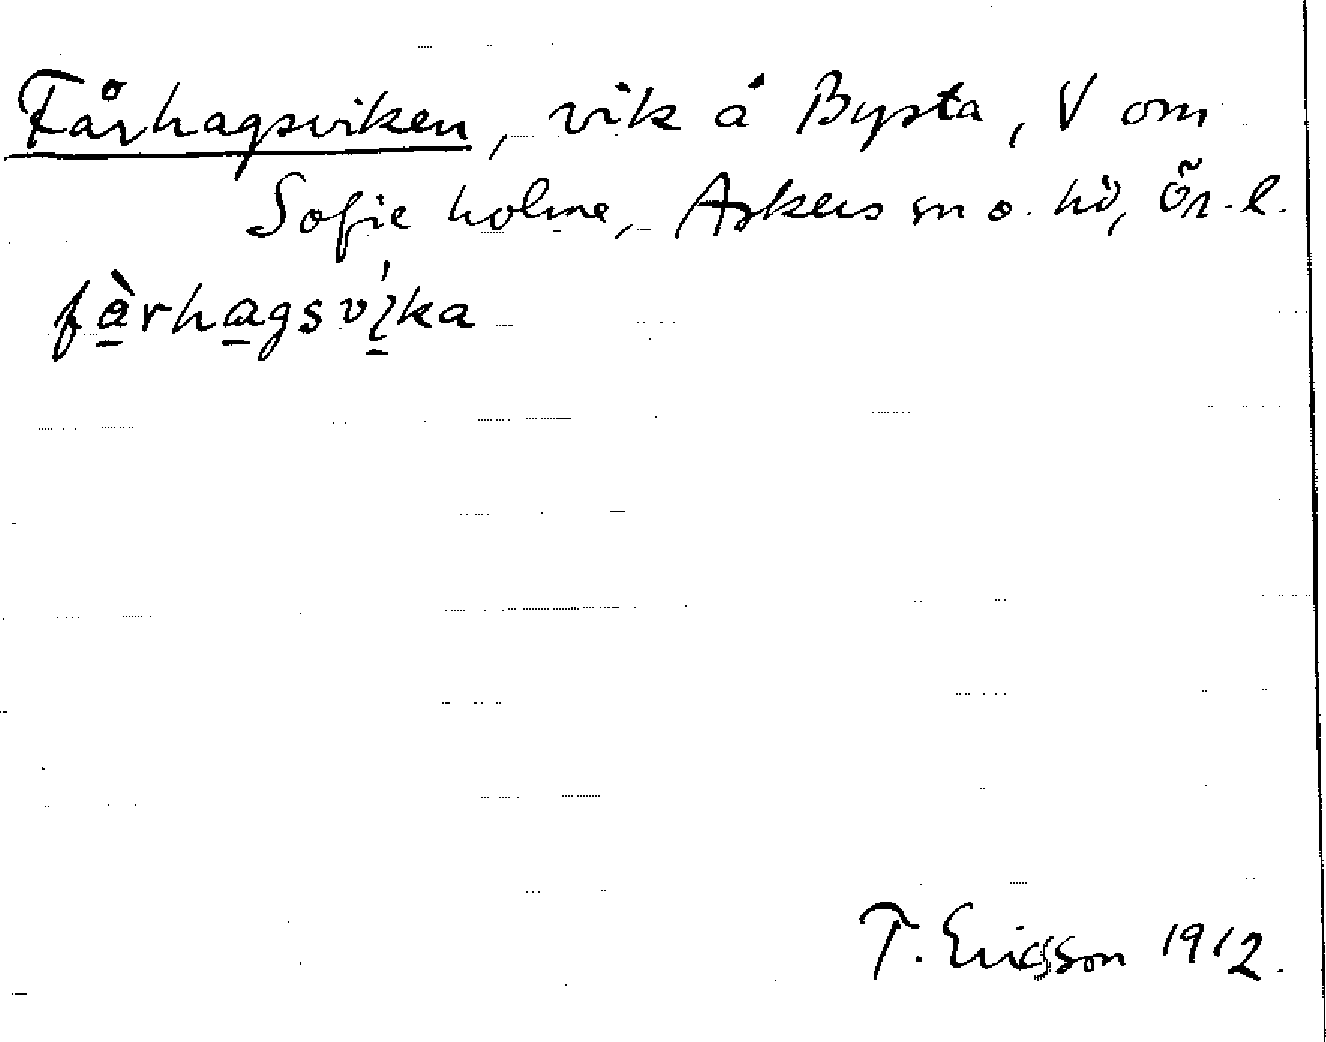 Fårhagsviken, vik å Bysta, V om
Sofieholme, Askers sn o. hd, Ör. l.
fàrhagsvı̨́ka
T. Ericsson 1912.